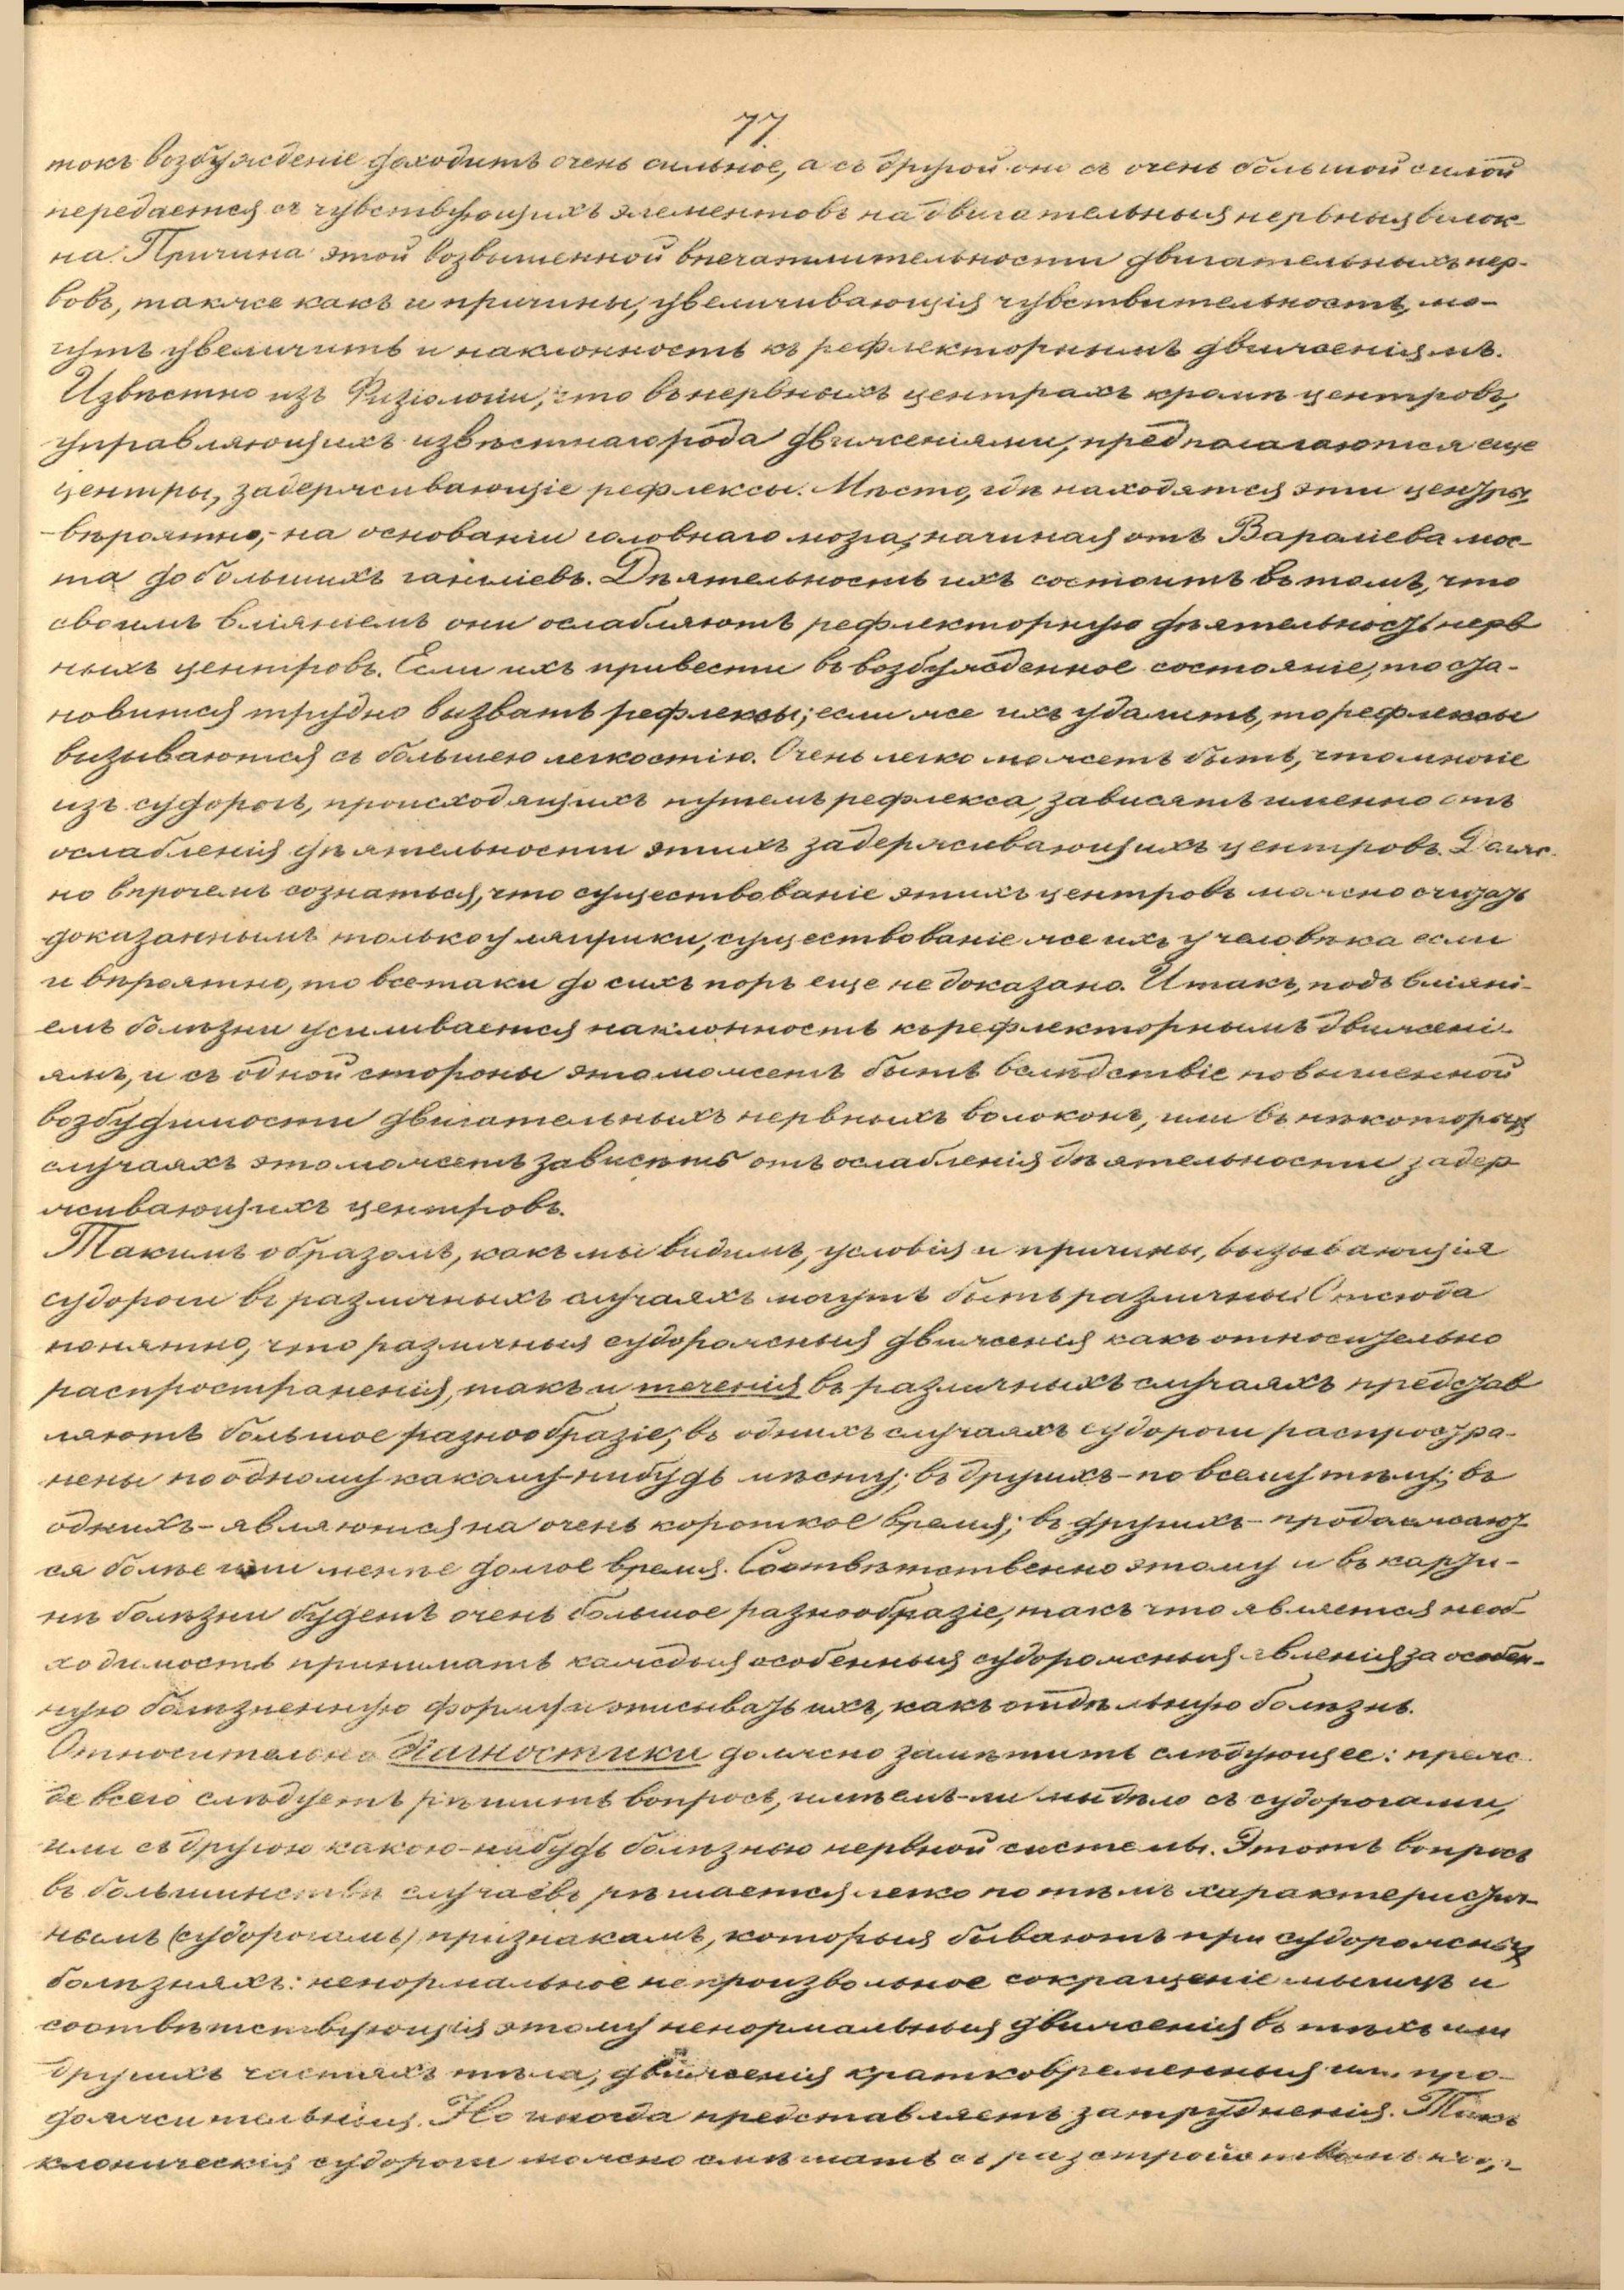 77.
токъ возбужденіе доходитъ очень сильное, а съ другой оно съ очень большой силой
передается съ чувствующихъ элементовъ на двигательныя нервныя волок-
на. Причина этой возвышенной впечатлительности двигательныхъ нер-
вовъ, также какъ и причины, увеличивающія чувствительность, мо-
гутъ увеличить и наклонность къ рефлекторнымъ движеніямъ.
Извѣстно изъ Физіологіи, что въ нервныхъ центрахъ кромѣ центровъ,
управляющихъ извѣстнаго рода движеніями, предполагаются еще
центры, задерживающіе рефлексы. Мѣсто, гдѣ находятся эти центры,
-вѣроятно,- на основаніи головнаго мозга, начиная отъ Вараліева мос-
та до большихъ гангліевъ. Дѣятельность ихъ состоитъ въ томъ, что
своимъ вліяніемъ они ослабляютъ рефлекторную дѣятельность нерв
ныхъ центровъ. Если ихъ привести въ возбужденное состояніе, то ста-
новится трудно вызвать рефлексы; если же ихъ удалить, то рефлексы
вызываются съ большею легкостію. Очень легко можетъ быть, что многіе
изъ судорогъ, происходящихъ путемъ рефлекса, зависятъ именно отъ
ослабленія дѣятельности этихъ задерживающихъ центровъ. Долж-
но впрочемъ сознаться, что существованіе этихъ центровъ можно считать
доказаннымъ только у лягушки, существованіе же ихъ у человѣка если
и вѣроятно, то всетаки до сихъ поръ еще не доказано. Итакъ, подъ вліяні-
емъ болѣзни усиливается наклонность къ рефлекторнымъ движені-
ямъ, и съ одной стороны это можетъ быть вслѣдствіе повышенной
возбудимости двигательныхъ нервныхъ волоконъ, или въ нѣкоторыхъ
случаяхъ это можетъ зависѣть отъ ослабленія дѣятельности задер
живающихъ центровъ.
Такимъ образомъ, какъ мы видимъ, условія и причины, вызывающія
судороги въ различныхъ случаяхъ могутъ быть различны. Отсюда
понятно, что различныя судорожныя движенія какъ относительно
распространенія, такъ и теченія въ различныхъ случаяхъ представ
ляютъ большое разнообразіе; въ однихъ случаяхъ судороги распростра-
нены по одному какому-нибудь мѣсту; въ другихъ - по всему тѣлу; въ
однихъ - являются на очень короткое время; въ другихъ - продолжают
ся болѣе или менѣе долгое время. Соотвѣтственно этому и въ карти-
нѣ болѣзни будетъ очень большое разнообразіе, такъ что является необ
ходимость принимать каждыя особенныя судорожныя явленія за особен-
ную болѣзненную форму и описывать ихъ, какъ отдѣльную болѣзнь.
Относительно діагностики должно замѣтить слѣдующее: преж-
де всего слѣдуетъ рѣшить вопросъ, имѣемъ-ли мы дѣло съ судорогами,
или съ другою какою-нибудь болѣзнью нервной системы. Этотъ вопросъ
въ большинствѣ случаевъ рѣшается легко по тѣмъ характеристич-
нымъ (судорогамъ) признакамъ, которыя бываютъ при судорожныхъ
болѣзняхъ: ненормальное непроизвольное сокращеніе мышцъ и
соотвѣтствующія этому ненормальныя движенія въ тѣхъ или
другихъ частяхъ тѣла, движенія кратковременныя или про-
должительныя. Но иногда представляетъ затрудненія. Такъ
клоническія судороги можно смѣшать съ разстройствомъ